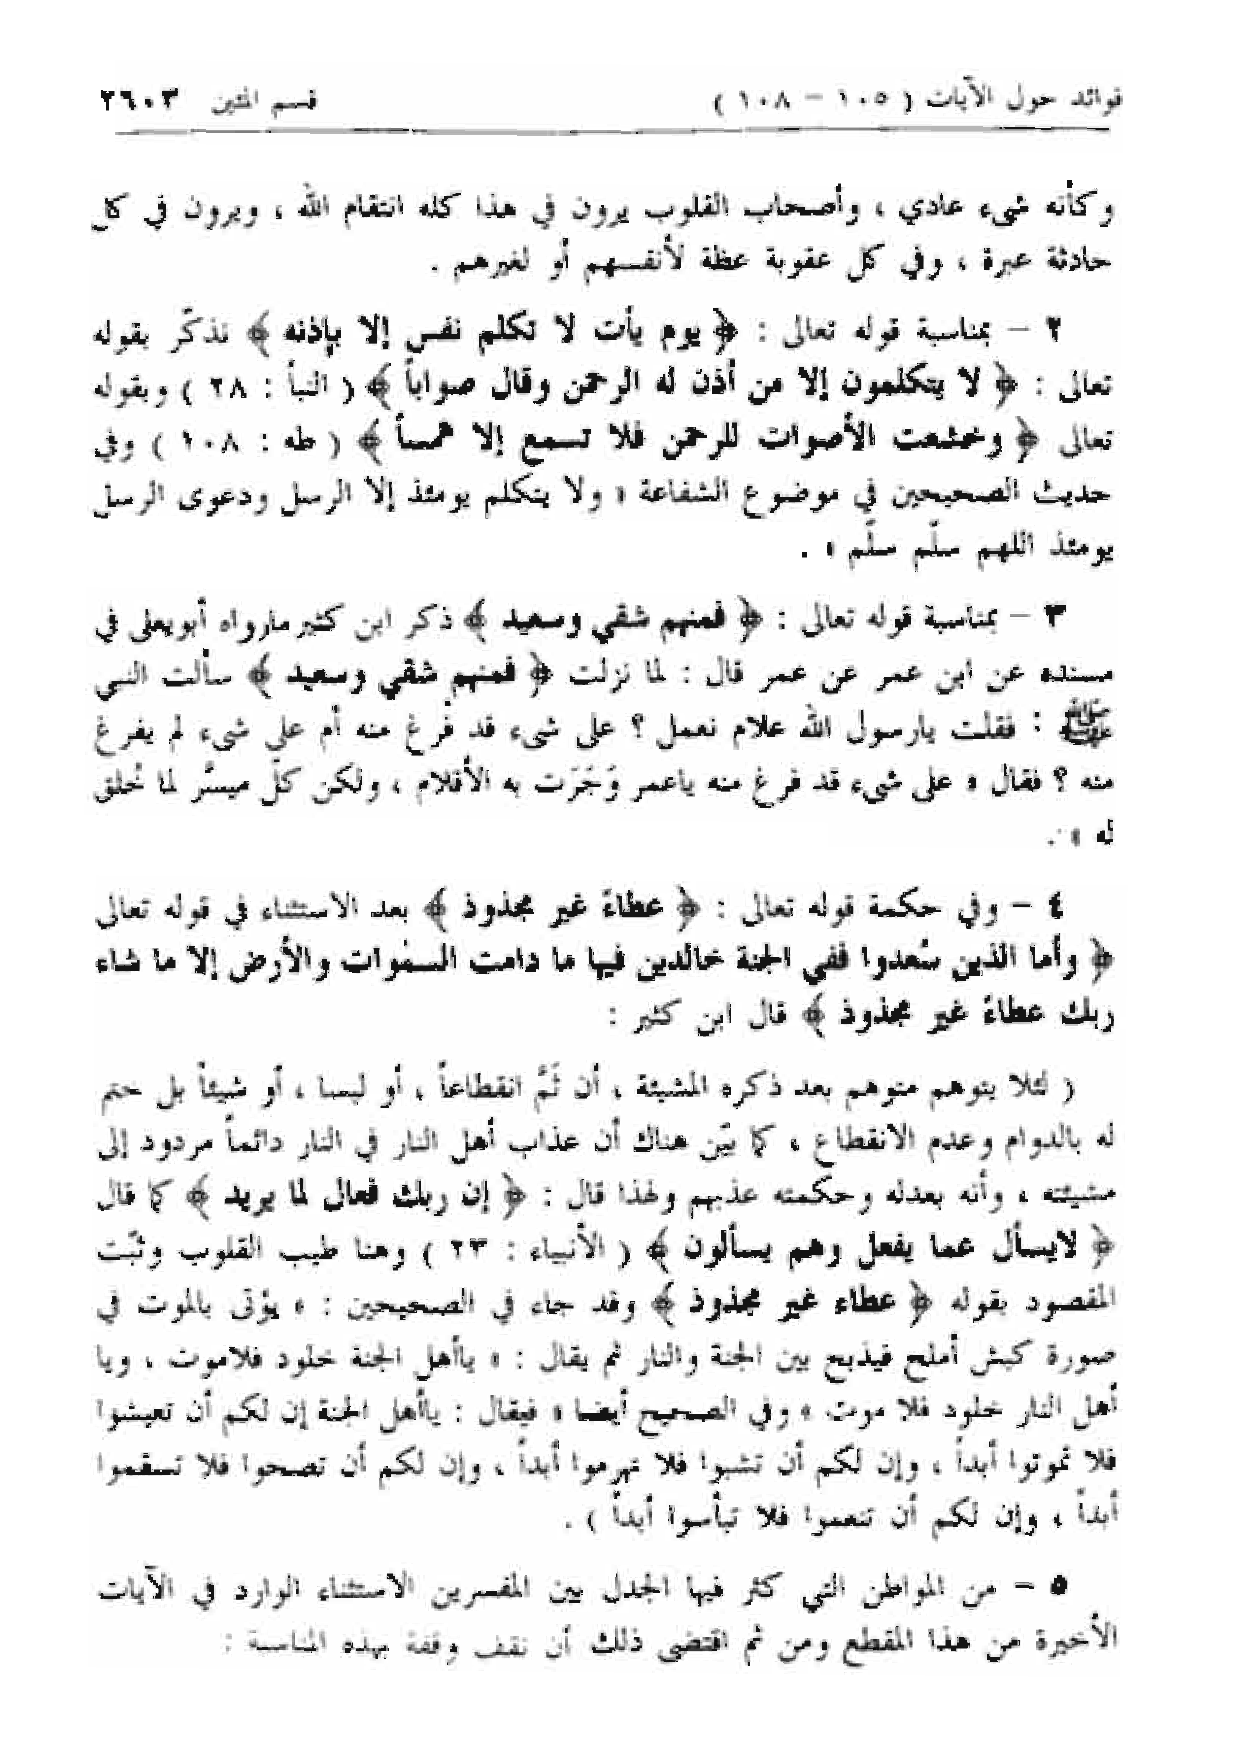 فوائد حول الآيات ( ١٠٥ – ١٠٨ ) قسم المئين ٢٦٠٣
وكأنه شيء عادي ، وأصحاب القلوب يرون في هذا كله انتقام الله ، ويرون في كل
حادثة عبرة ، وفي كل عقوبة عظة لأنفسهم أو لغيرهم .
٢ – بمناسبة قوله تعالى : ﴿ يوم يأت لا تكلم نفس إلا بإذنه ﴾ نذكّر بقوله
تعالى : ﴿ لا يتكلمون إلا من أذن له الرحمن وقال صواباً ﴾ ( النبأ : ٢٨ ) وبقوله
تعالى ﴿ وخشعت الأصوات للرحمن فلا تسمع إلا همساً ﴾ ( طه : ١٠٨ ) وفي
حديث الصحيحين في موضوع الشفاعة « ولا يتكلم يومئذ إلا الرسل ودعوى الرسل
يومئذ اللهم سلّم سلّم » .
٣ – بمناسبة قوله تعالى : ﴿ فمنهم شقي وسعيد ﴾ ذكر ابن كثير مارواه أبويعلى في
مسنده عن ابن عمر عن عمر قال : لما نزلت ﴿ فمنهم شقي وسعيد ﴾ سألت النبي
ﷺ : فقلت يارسول الله علام نعمل ؟ على شيء قد فُرغ منه أم على شيء لم يفرغ
منه ؟ فقال « على شيء قد فرغ منه ياعمر وَجَرَت به الأقلام ، ولكن كلّ ميسَّر لما خُلق
له » .
٤ – وفي حكمة قوله تعالى : ﴿ عطاءً غير مجذوذ ﴾ بعد الاستثناء في قوله تعالى
﴿ وأما الذين سُعدوا ففي الجنة خالدين فيها ما دامت السمٰوات والأرض إلا ما شاء
ربك عطاءً غير مجذوذ ﴾ قال ابن كثير :
( لئلا يتوهم متوهم بعد ذكره المشيئة ، أن ثَمَّ انقطاعاً ، أو لبسا ، أو شيئاً بل حتم
له بالدوام وعدم الانقطاع ، كما بيّن هناك أن عذاب أهل النار في النار دائماً مردود إلى
مشيئته ، وأنه بعدله وحكمته عذبهم ولهذا قال : ﴿ إن ربك فعال لما يريد ﴾ كما قال
﴿ لايسأل عما يفعل وهم يسألون ﴾ ( الأنبياء : ٢٣ ) وهنا طيب القلوب وثبّت
المقصود بقوله ﴿ عطاء غير مجذوذ ﴾ وقد جاء في الصحيحين : « يؤتى بالموت في
صورة كبش أملح فيذبح بين الجنة والنار ثم يقال : « ياأهل الجنة خلود فلاموت ، ويا
أهل النار خلود فلا موت » وفي الصحيح أيضا « فيقال : ياأهل الجنة إن لكم أن تعيشوا
فلا تموتوا أبداً ، وإن لكم أن تشبوا فلا تهرموا أبداً ، وإن لكم أن تصحوا فلا تسقموا
أبداً ، وإن لكم أن تنعموا فلا تبأسوا أبداً ) .
٥ – من المواطن التي كثر فيها الجدل بين المفسرين الاستثناء الوارد في الآيات
الأخيرة من هذا المقطع ومن ثم اقتضى ذلك أن نقف وقفة بهذه المناسبة :